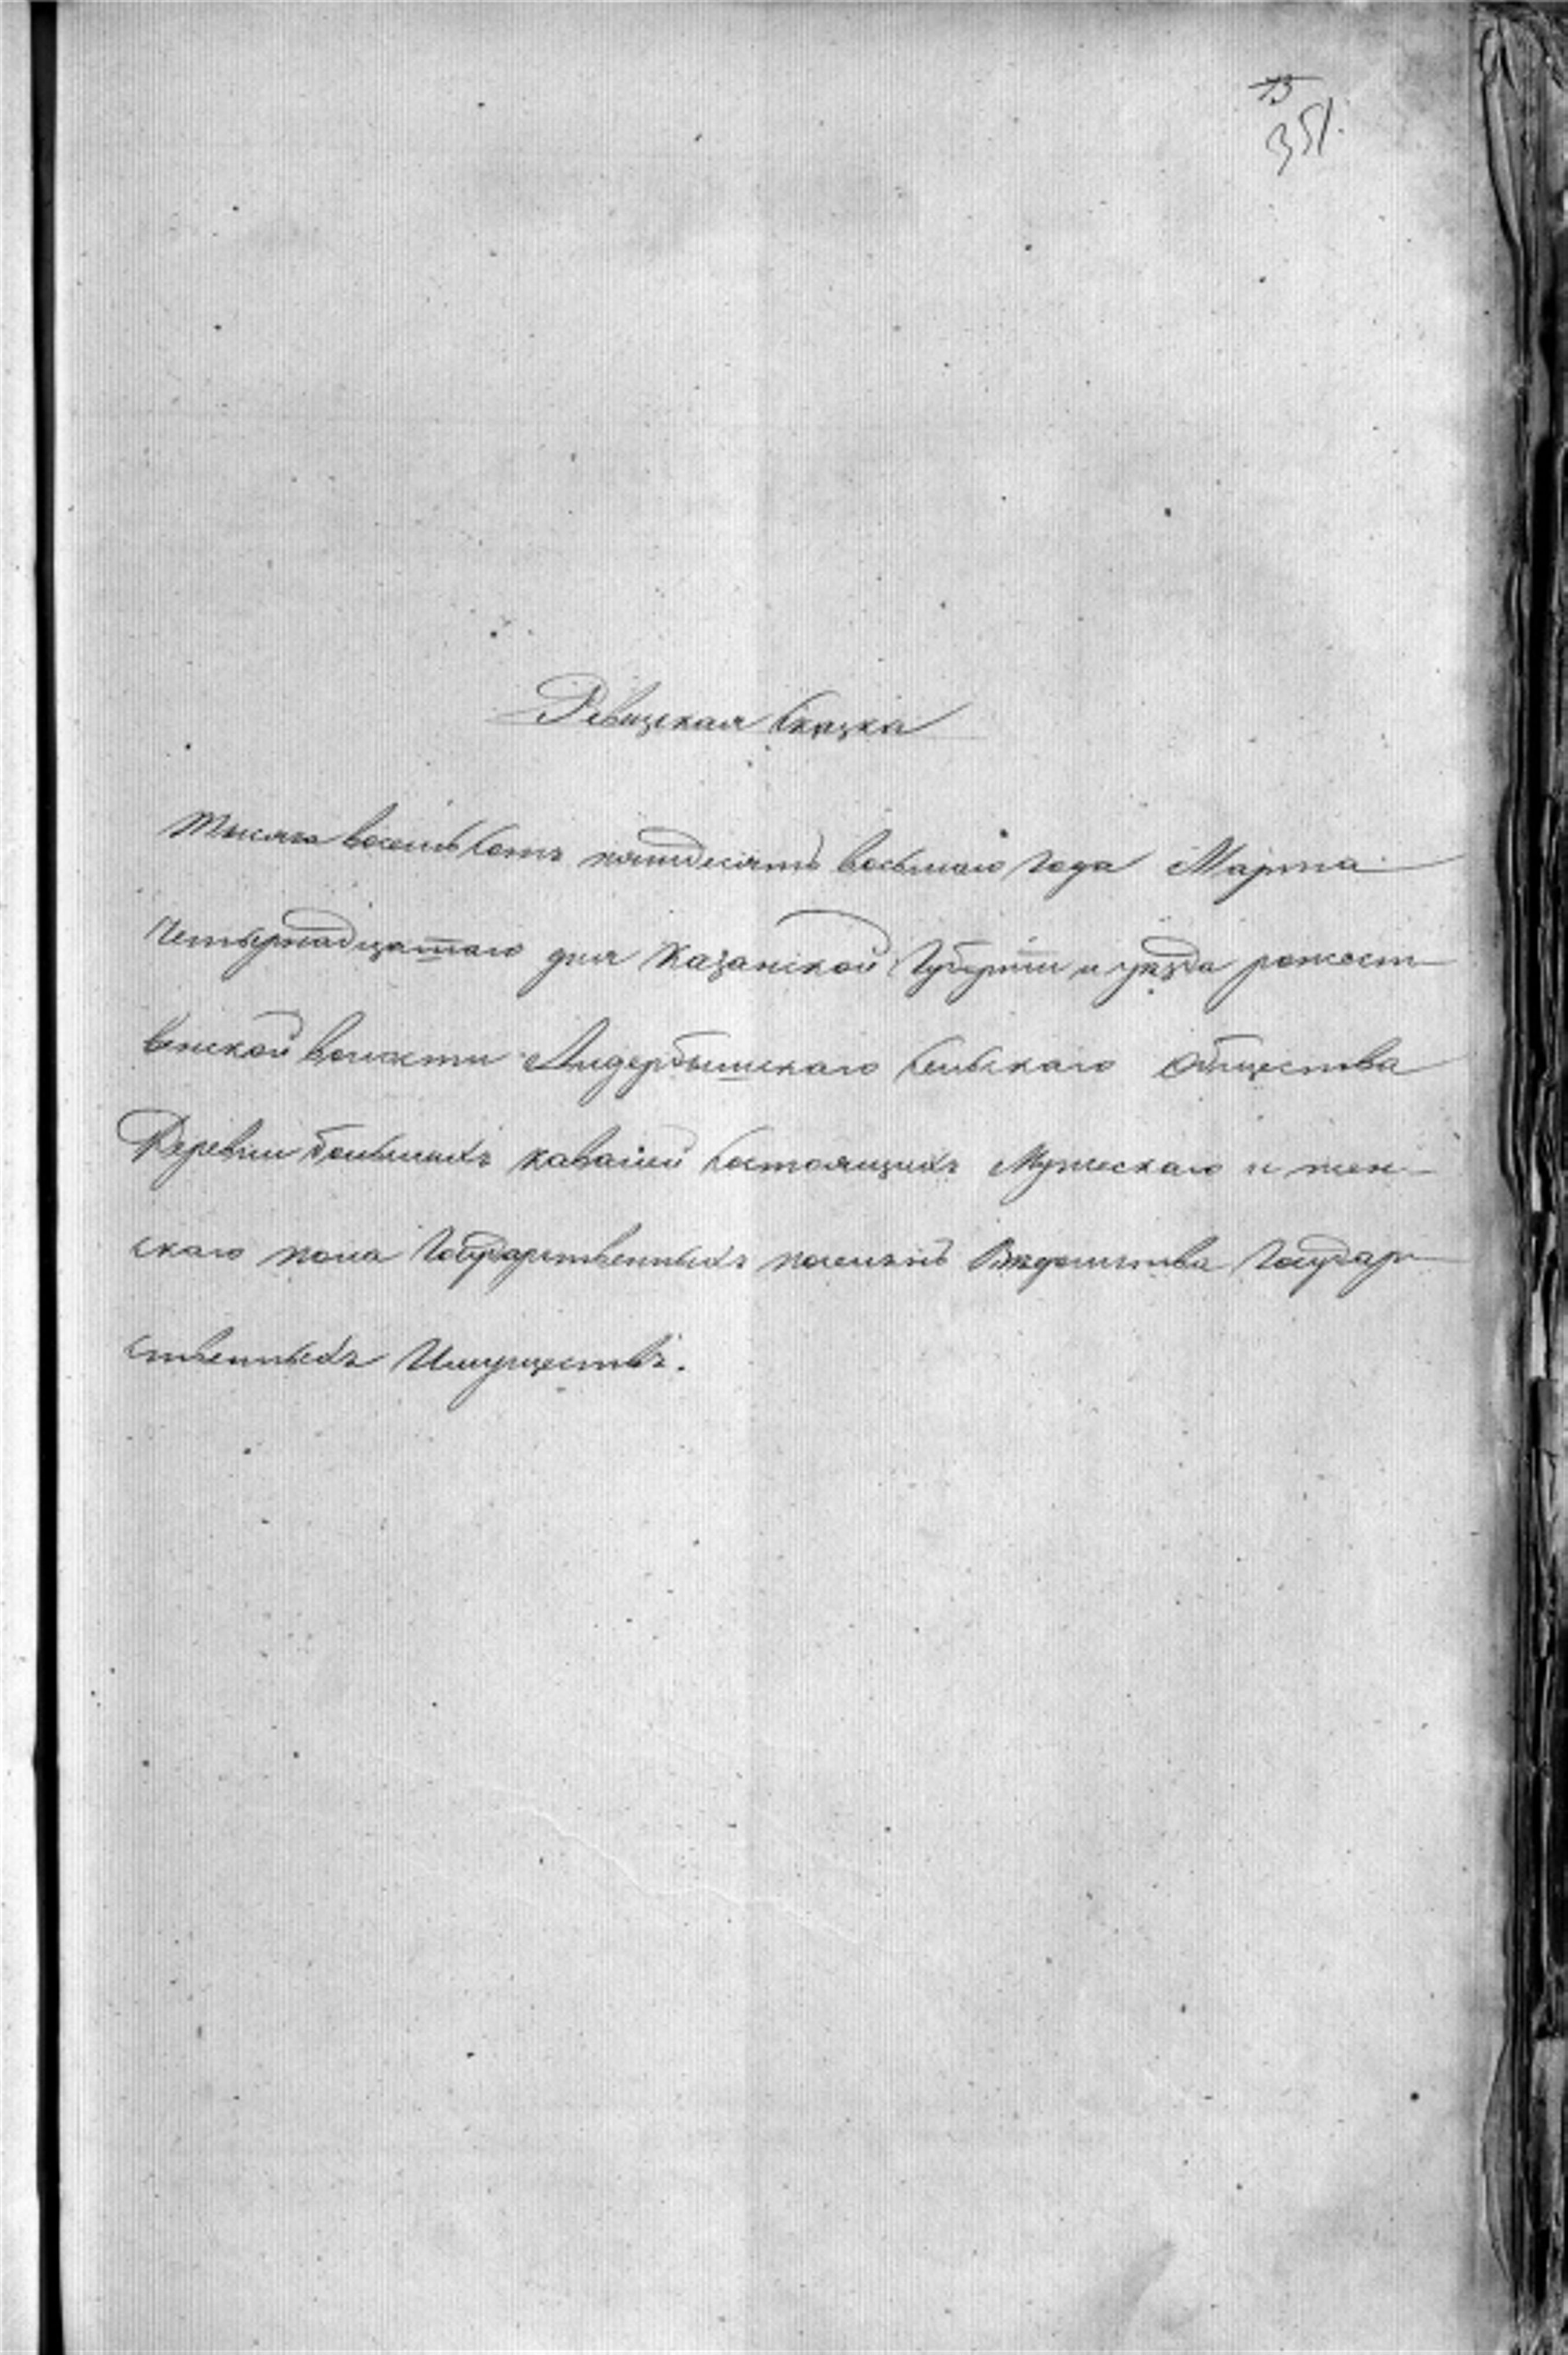 351.
Ревизская Сказка
Тысяча восемь Сотъ пятьдесятъ восьмаго Года Марта
Четырнадцатаго дня Казанской Губерніи и уѣзда рожест-
венской волости Андербышскаго Сельскаго Общества
Деревни большихъ кавалей Состоящихъ Мужескаго и жен-
скаго пола Государственныхъ поселянъ Вѣдомства Государ-
ственныхъ Имуществъ.